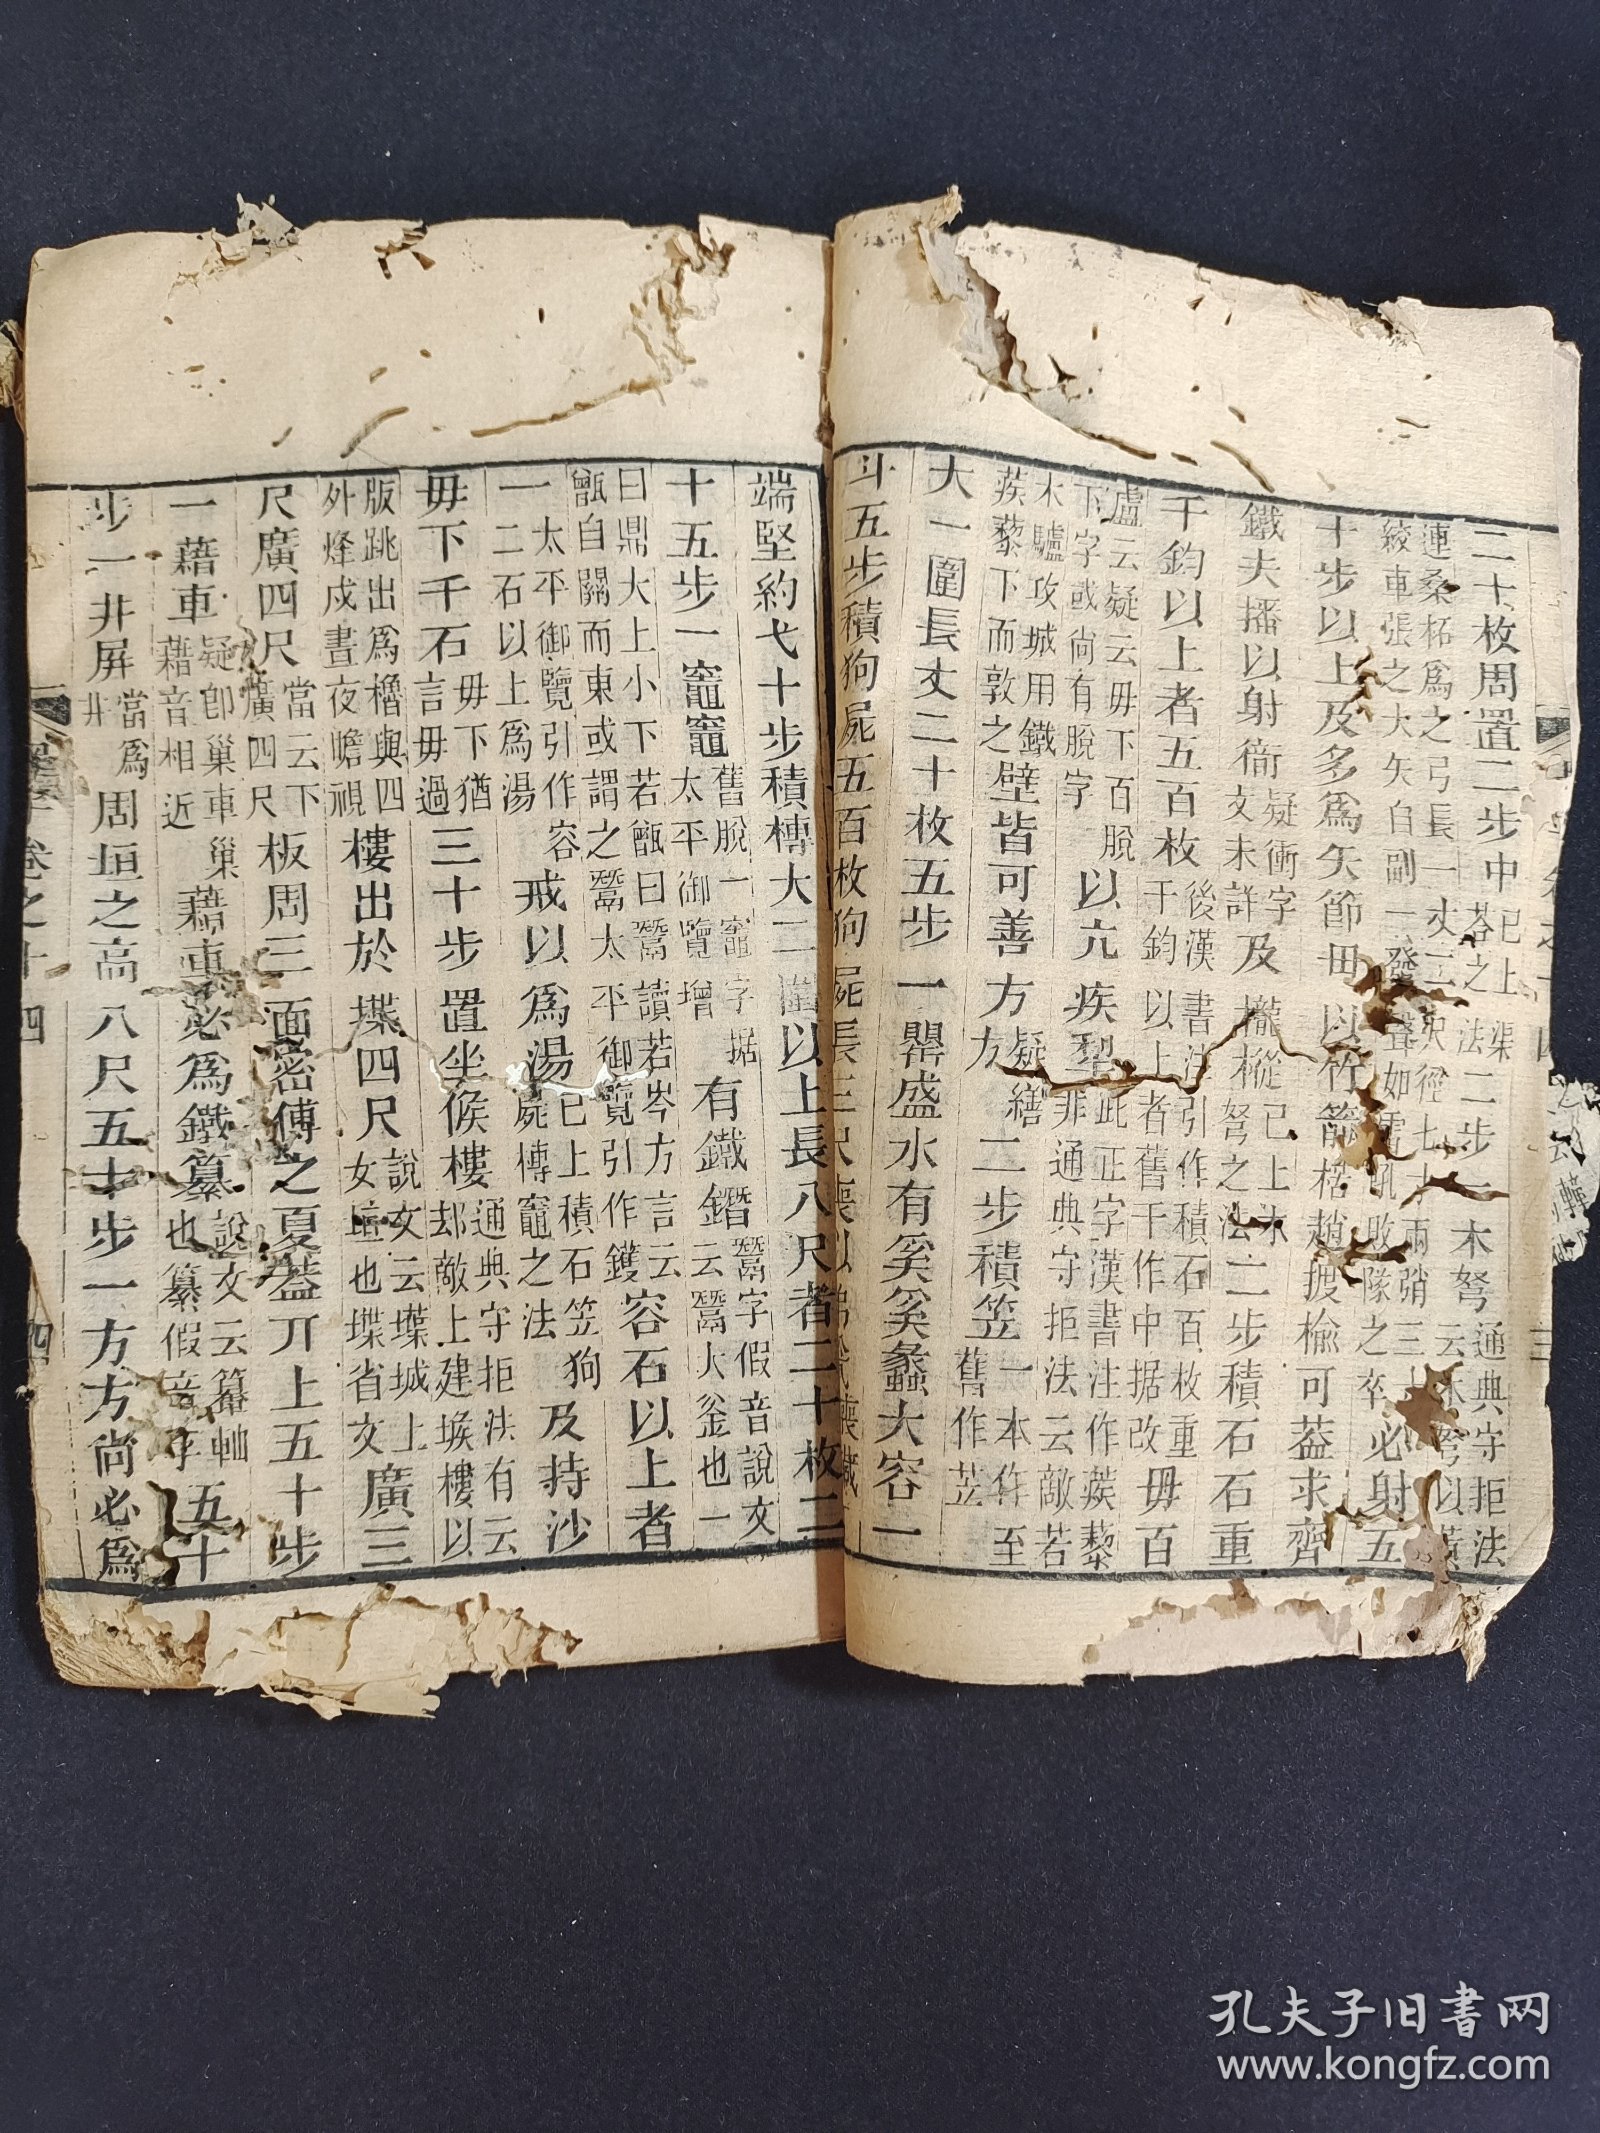 二十枚周置二步中已上渠荅之法二步一木弩通典守拒法云木弩以黃
連桑柘爲之弓長一丈二尺徑七寸兩弰三寸
絞車張之大矢自副一發聲如雷吼敗隊之卒必射五
十步以上及多爲矢節毋以竹箭楛趙披榆可葢求齊
鐵夫播以射衝疑衝字文未詳及櫳樅已上木弩之法二步積石石重
千鈞以上者五百枚後漢書注引作積石百枚重千鈞以上者舊千作中据改毋百
盧云疑云毋下百脫下字或尙有脫字以亢疾犂此正字漢書注作蒺藜非通典守拒法云敵若
木驢攻城用鐵蒺藜下而敦之壁皆可善方疑繕方二步積笠一本作至舊作苙
大一圍長丈二十枚五步一罌盛水有奚奚蠡大容一
斗五步積狗屍五百枚狗屍長三尺
端堅約弋十步積榑大二圍以上長八尺者二十枚二
十五步一竈竈舊脫一竈字据太平御覽增有鐵鐕鬵字假音說文云鬵大釜也一
曰鼎大上小下若甑曰鬵讀若岑方言云甑自關而東或謂之鬵太平御覽引作鑊容石以上者
一太平御覽引作容一二石以上爲湯戒以爲湯已上積石笠狗屍榑竈之法及持沙
毋下千石毋下猶言毋過三十步置坐候樓通典守拒法有云却敵上建堠樓以
版跳出爲櫓與四外烽戍晝夜瞻視樓出於堞四尺說文云堞城上女垣也堞省文廣三
尺廣四尺當云下廣四尺板周三面密傅之夏葢丌上五十步
一藉車疑卽巢車巢藉音相近藉車必爲鐵纂說文云纂軸也纂假音字五十
步一井屏當爲井周垣之高八尺五十步一方方尙必爲
卷之十四
四
三
孔夫子旧书网
www.kongfz.com